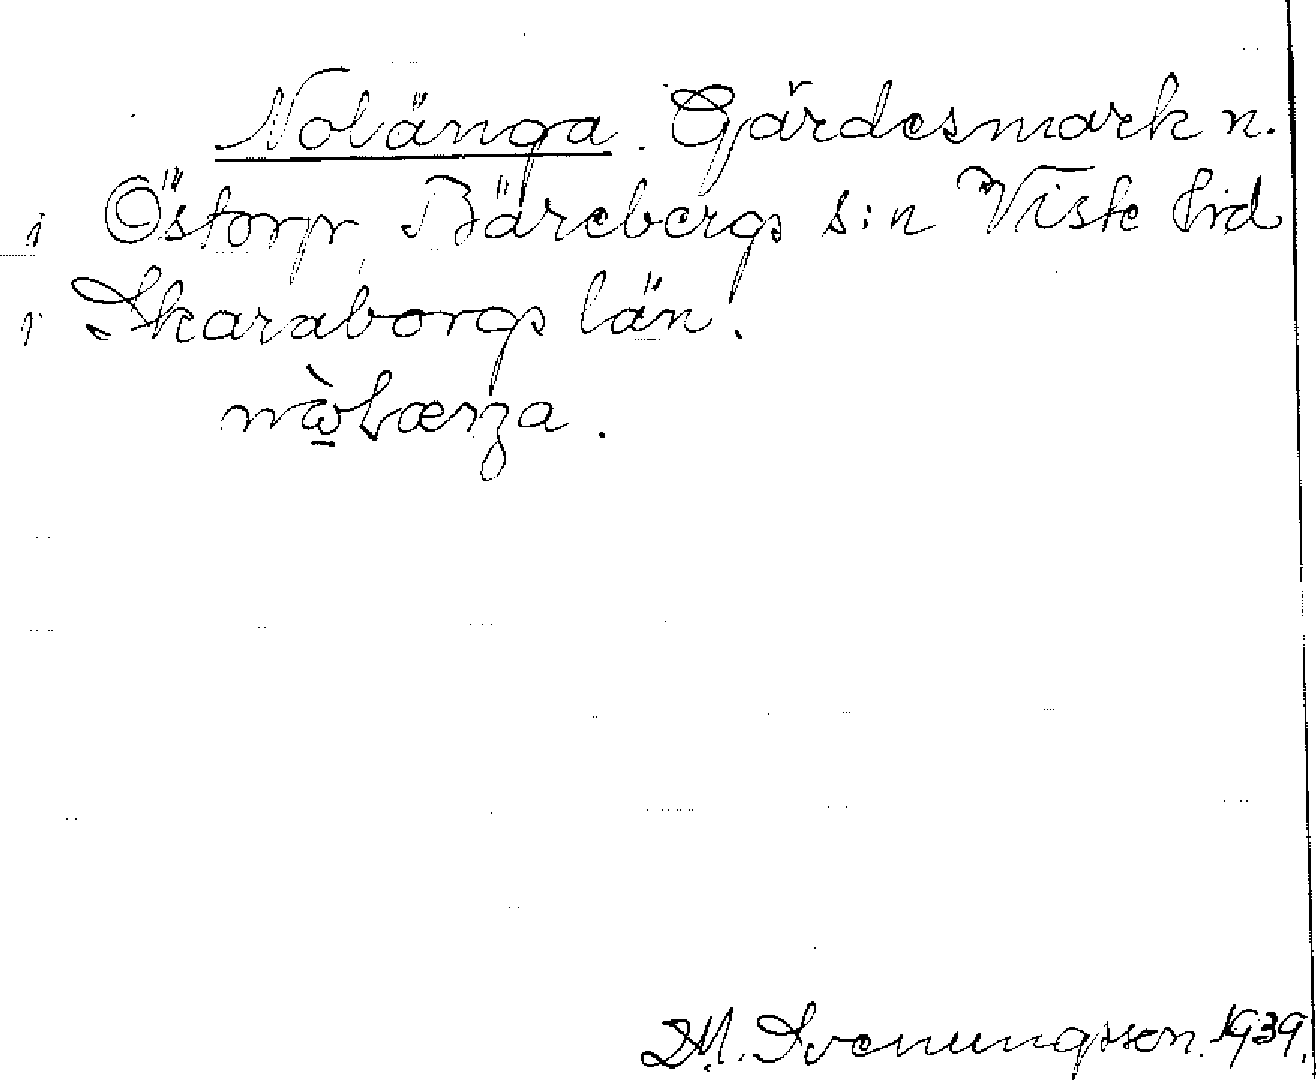 Nolänga. Gärdesmark n.
Östorp, Bärebergs s:n Viste hrd
Skaraborgs län.
M. Svenungsson. 1939.